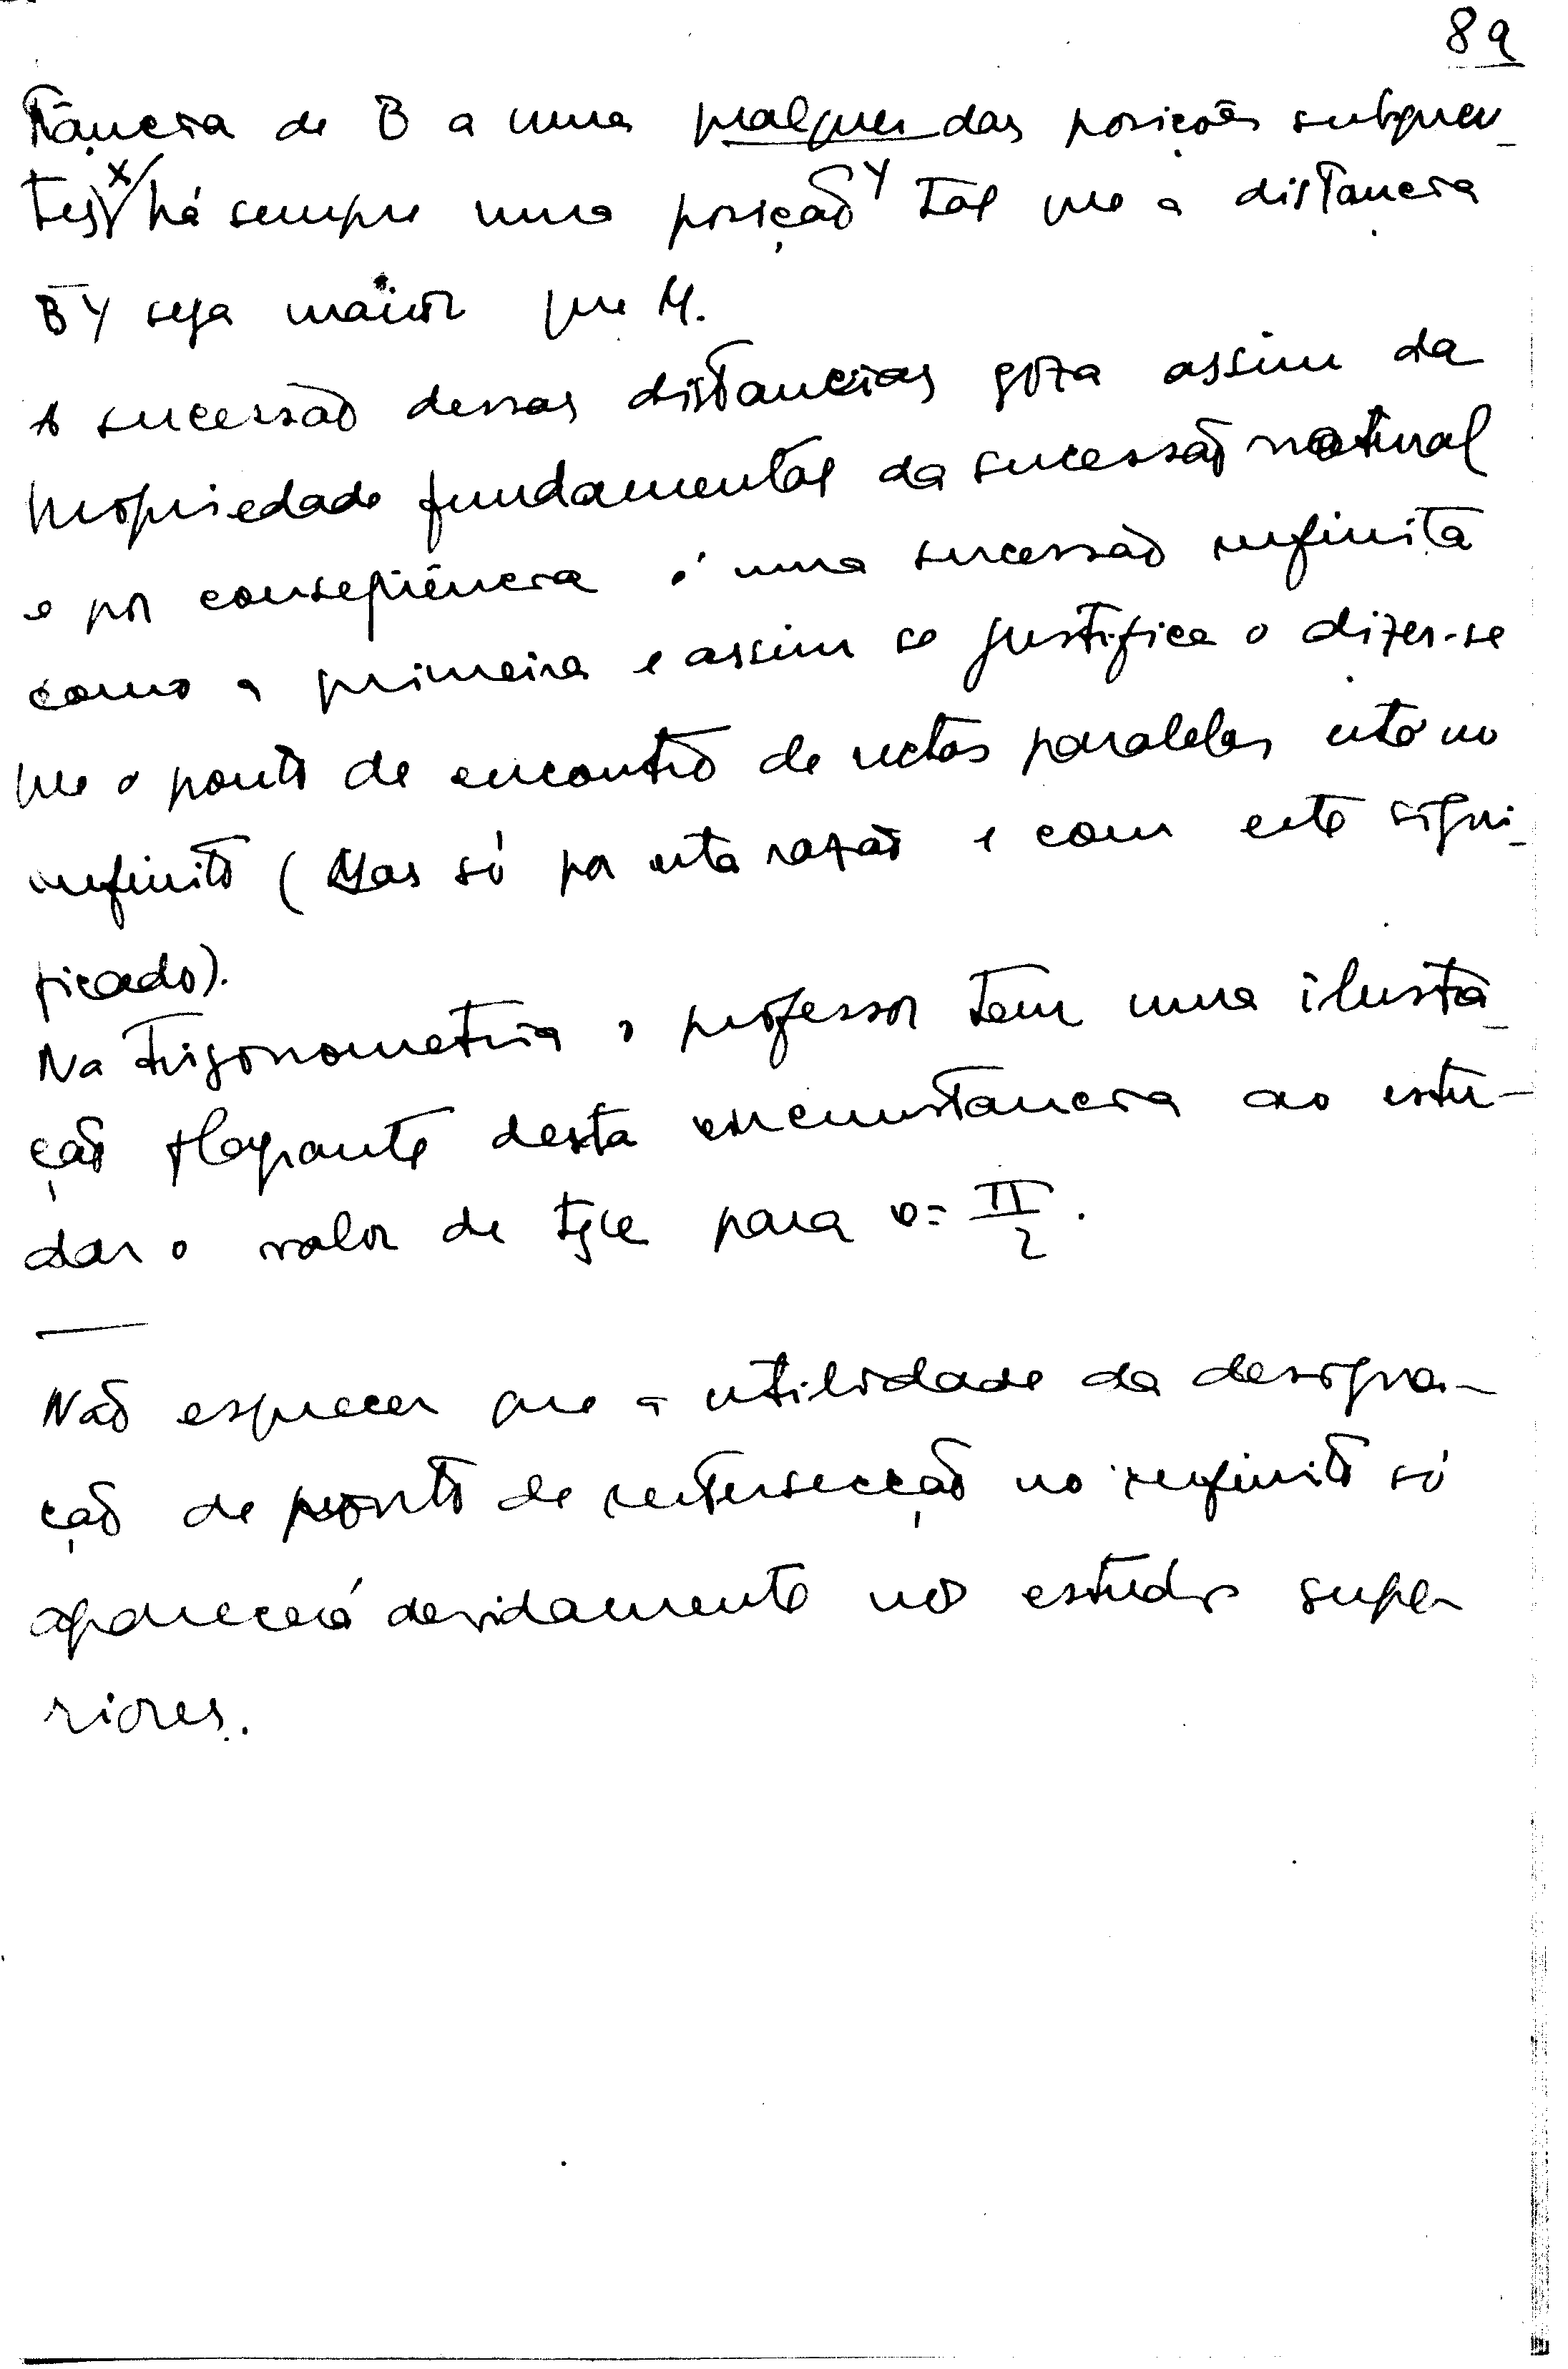 89
tância de B a uma qualquer das posições subquen-
tes X há sempre uma posição Y tal que a distancia
BY seja maior que M.
A sucessão dessas distancias goza assim da
propriedade fundamental da sucessão natural
e por conseqüência é uma sucessão infinita
como a primeira e assim se justifica o dizer-se
que o ponto de encontro de rectas paralelas está no
infinito (Mas só por esta razão e com este signi-
ficado).
Na Trigonometria o professor tem uma ilustra-
ção flagrante desta circunstancia ao estu-
dar o valor de tg α para α = π/2.
Não esquecer que a utilidade da designa-
ção de ponto de intersecção no infinito só
aparecerá devidamente nos estudos supe-
riores.